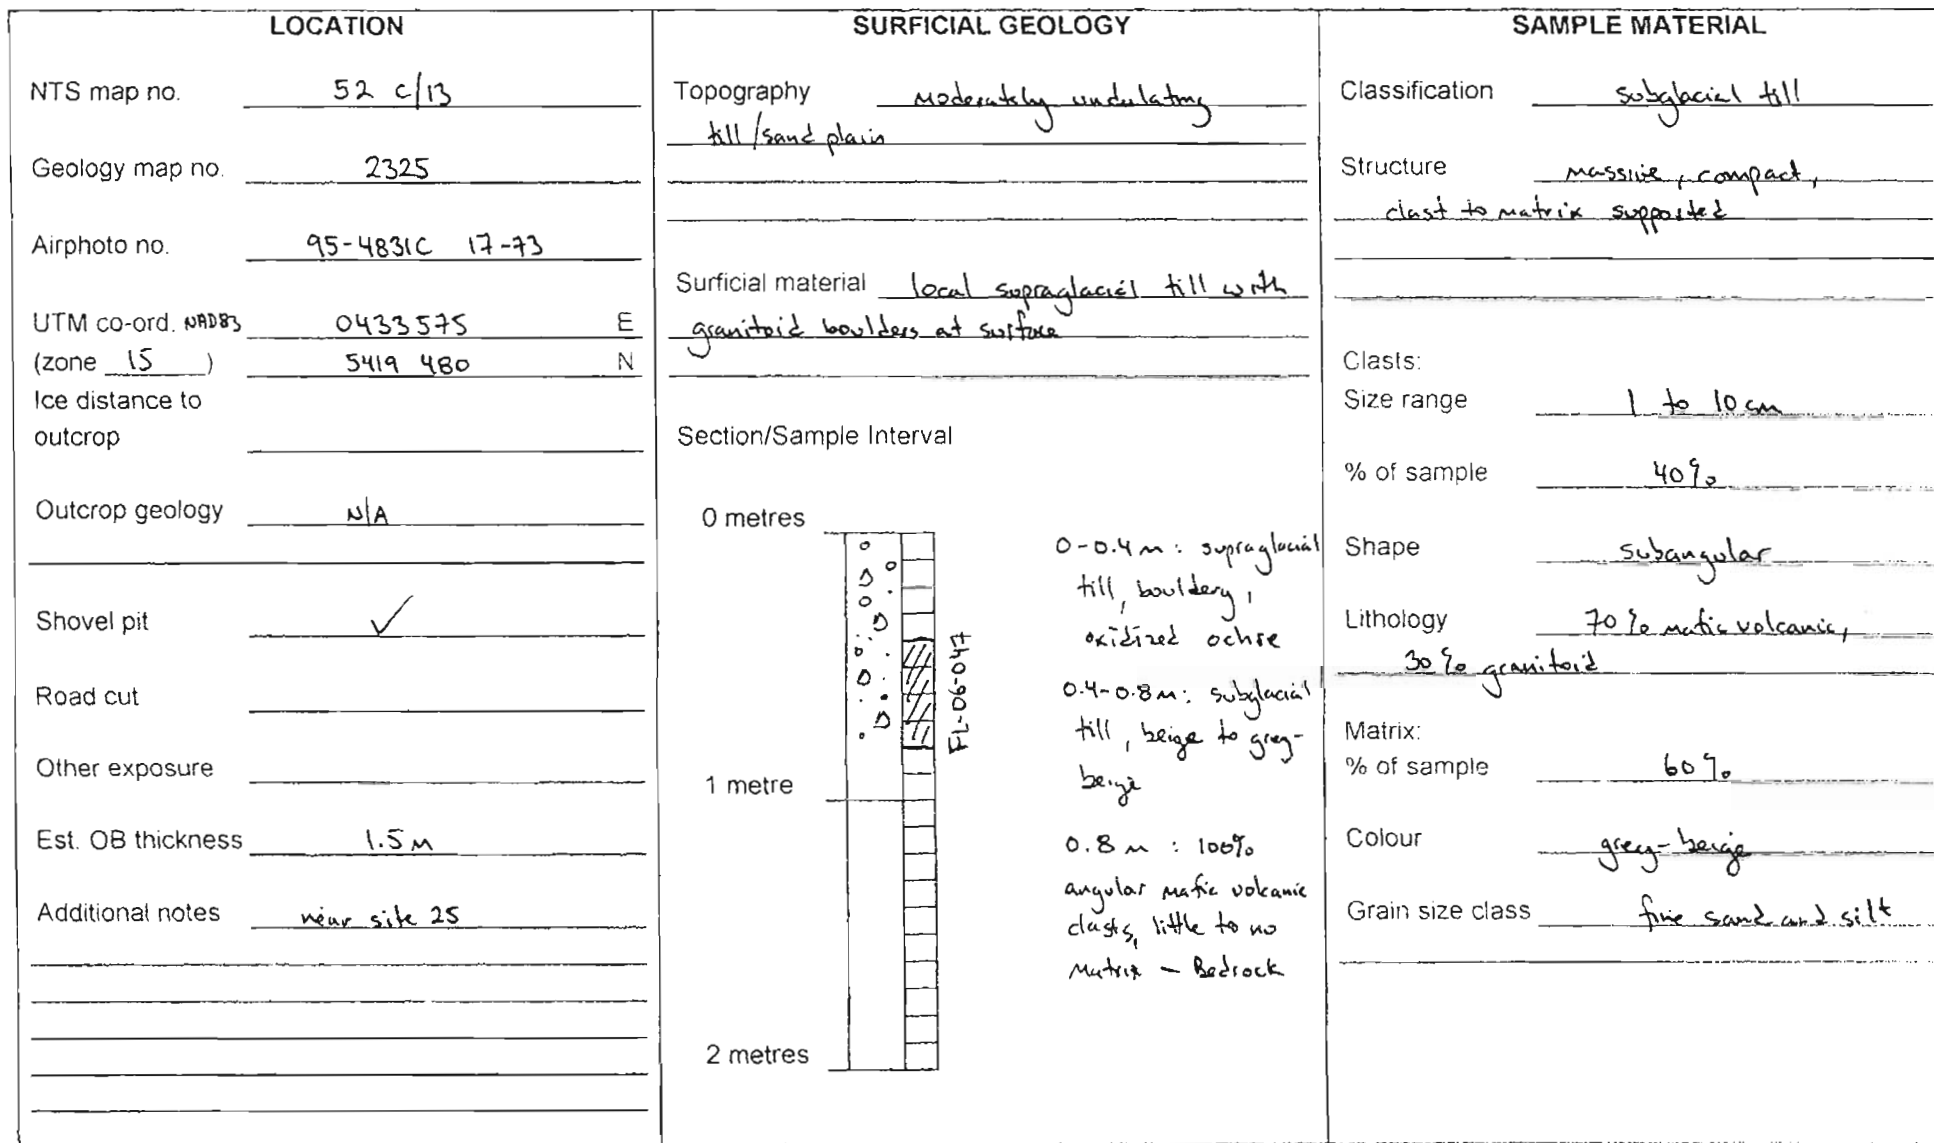 LOCATION
NTS map no. 52 C/13
Geology map no. 2325
Airphoto no. 95-4831C 17-73
UTM co-ord. NAD83 0433575 E
(zone 15 ) 5419 480 N
Ice distance to
outcrop
Outcrop geology N/A
Shovel pit ✓
Road cut
Other exposure
Est. OB thickness 1.5 m
Additional notes near site 25
SURFICIAL GEOLOGY
Topography Moderately undulating
till/sand plain
Surficial material local supraglacial till with
granitoid boulders at surface
Section/Sample Interval
0 metres
1 metre
2 metres
FL-06-047
0-0.4 m: supraglacial
till, bouldery,
oxidized ochre
0.4-0.8 m: subglacial
till, beige to grey-
beige
0.8 m : 100%
angular mafic volcanic
clasts, little to no
matrix - Bedrock
SAMPLE MATERIAL
Classification subglacial till
Structure massive, compact,
clast to matrix supported
Clasts:
Size range 1 to 10 cm
% of sample 40%
Shape subangular
Lithology 70% mafic volcanic,
30% granitoid
Matrix:
% of sample 60%
Colour grey-beige
Grain size class fine sand and silt